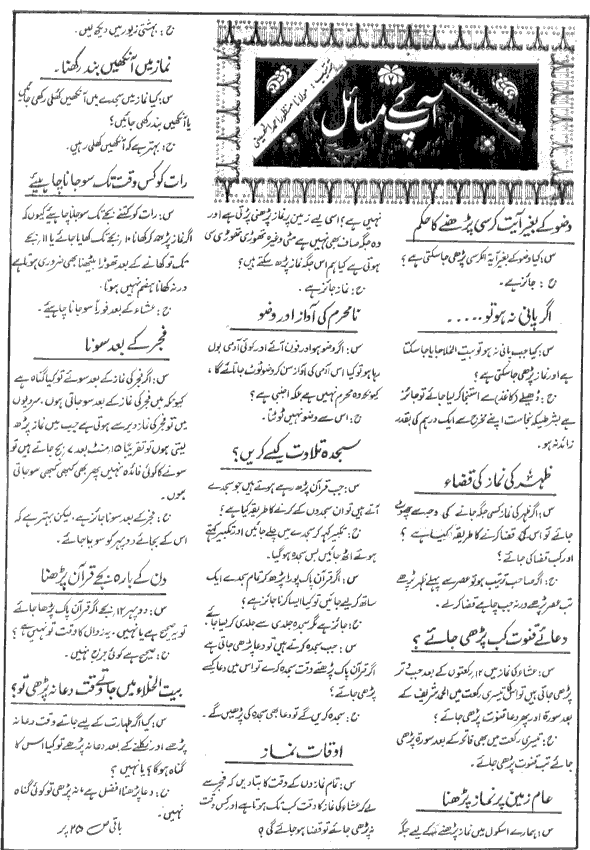 آپ کے مسائل
وضو کے بغیر آیت کرسی پڑھنے کا حکم
س: کیا وضو کے بغیر آیۃ الکرسی پڑھی جا سکتی ہے؟
ج: جائز ہے۔
اگر پانی نہ ہو تو.....
س: کیا جب پانی نہ ہو تو بیت الخلا جایا جا سکتا
ہے اور نماز پڑھی جا سکتی ہے؟
ج: ڈھیلے یا کاغذ سے استنجا کر لیا جائے تو جائز
ہے بشرطیکہ نجاست اپنے مخرج سے ایک درہم کی بقدر
زائد نہ ہو۔
ظہر کی نماز کی قضاء
س: اگر ظہر کی نماز کسی جگہ جانے کی وجہ سے چھوٹ
جائے تو اس کی قضا کرنے کا طریقہ کیسا ہے؟
اور کب قضا کی جائے؟
ج: اگر صاحب ترتیب ہو تو عصر سے پہلے ظہر پڑھے
تب عصر پڑھے ورنہ جب چاہے قضا کرلے۔
دعائے قنوت کب پڑھی جائے؟
س: عشاء کی نماز میں ۱۲ رکعتوں کے بعد جب وتر
پڑھی جاتی ہیں تو اسکی تیسری رکعت میں الحمد شریف کے
بعد سورۃ اور پھر دعا قنوت پڑھی جائے؟
ج: تیسری رکعت میں بھی فاتحہ کے بعد سورۃ پڑھی
جائے تب قنوت پڑھی جائے۔
عام زمین پر نماز پڑھنا
س: ہمارے اسکول میں نماز پڑھنے کے لیے جگہ
نہیں ہے؟ اسی لیے زمین پر نماز پڑھنی پڑتی ہے اور
وہ جگہ صاف بھی نہیں ہے مٹی وغیرہ تھوڑی تھوڑی سی
ہوتی ہے کیا ہم اس جگہ نماز پڑھ سکتے ہیں؟
ج: نماز جائز ہے۔
نامحرم کی آواز اور وضو
س: اگر وضو ہو اور فون آئے اور کوئی آدمی بول
رہا ہو تو کیا اس آدمی کی آواز سن کر وضو ٹوٹ جاتا ہے،
کیونکہ وہ محرم نہیں ہے بلکہ اجنبی ہے؟
ج: اس سے وضو نہیں ٹوٹتا۔
سجدہ تلاوت کیسے کریں؟
س: جب قرآن پڑھ رہے ہوتے ہیں جو سجدے
آتے ہیں تو ان سجدوں کے کرنے کا طریقہ کیا ہے؟
ج: تکبیر کہہ کر سجدے میں چلے جائیں اور تکبیر کہتے
ہوئے اٹھ جائیں بس سجدہ ہو گیا۔
س: اگر قرآن پاک پورا پڑھ کر تمام سجدے ایک
ساتھ کر لیے جائیں تو کیا ایسا کرنا جائز ہے؟
ج: جائز ہے مگر سجدہ جلدی سے جلدی کر لیا جائے۔
س: جب سجدہ کرتے ہیں تو دعا پڑھی جاتی ہے
اگر قرآن پاک پڑھتے وقت سجدہ کرے تو اس میں دعا کیسے
پڑھی جائے؟
ج: سجدہ کریں گے تو دعا بھی سجدہ کی پڑھیں گے۔
اوقات نماز
س: تمام نمازوں کے وقت کا بتا دیں کہ فجر سے
لے کر عشاء کی نماز کا وقت کب تک ہوتا ہے اور کس وقت
نہ پڑھی جائے تو قضا ہو جائے گی؟
ج: بہشتی زیور میں دیکھ لیں۔
نماز میں آنکھیں بند رکھنا۔
س: کیا نماز میں سجدے میں آنکھیں کھلی رکھی جائیں
یا آنکھیں بند رکھی جائیں؟
ج: بہتر ہے کہ آنکھیں کھلی رہیں۔
رات کو کس وقت تک سو جانا چاہیئے
س: رات کو کتنے بجے تک سو جانا چاہیئے کیوں کہ
اگر نماز پڑھ کر کھانا ۱۰ بجے تک کھایا جائے یا ۱۱ بجے
تک تو کھانے کے بعد تھوڑا بیٹھنا بھی ضروری ہوتا ہے
ورنہ کھانا ہضم نہیں ہوتا۔
ج: عشاء کے بعد فوراً سو جانا چاہیئے۔
فجر کے بعد سونا
س: اگر فجر کی نماز کے بعد سوئے تو کیا گناہ ہے
کیونکہ میں فجر کی نماز کے بعد سو جاتی ہوں۔ سردیوں
میں تو فجر کی نماز دیر سے ہوتی ہے جب میں نماز پڑھ
لیتی ہوں تو تقریباً ۱۵ منٹ بعد ۷ بج جاتے ہیں تو
سونے کا کوئی فائدہ نہیں پھر بھی کبھی کبھی سو جاتی
ہوں۔
ج: فجر کے بعد سونا جائز ہے، لیکن بہتر ہے کہ
اس کے بجائے دوپہر کو سویا جائے۔
دن کے بارہ بجے قرآن پڑھنا
س: دوپہر ۱۲ بجے اگر قرآن پاک پڑھا جائے
تو یہ صحیح ہے یا نہیں، یہ زوال کا وقت تو نہیں ہے؟
ج: صحیح ہے کوئی ہرج نہیں۔
بیت الخلاء میں جاتے وقت دعا نہ پڑھی تو؟
س: کیا اگر طہارت کے لیے جاتے وقت دعا نہ
پڑھے اور نکلنے کے بعد دعا نہ پڑھے تو کیا اس کا
گناہ ہو گا؟ یا نہیں؟
ج: دعا پڑھنا افضل ہے، نہ پڑھی تو کوئی گناہ
نہیں۔
باقی ص ۲۵ پر